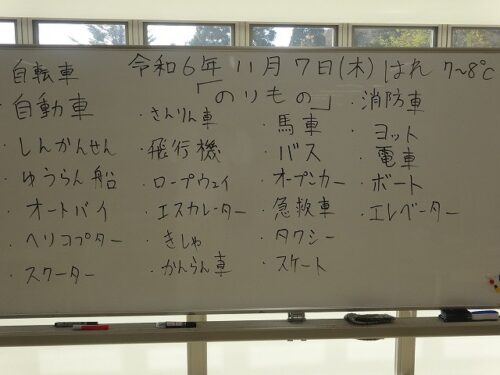 令和6年 11月 7日(木) はれ 7~8℃
「のりもの」
自転車
・自動車
・しんかんせん
・ゆうらん船
・オートバイ
・ヘリコプター
・スクーター
・きんりん車
・飛行機
・ロープウェイ
・エスカレーター
・きしゃ
・かんらん車
・馬車
・バス
・オープンカー
・急救車
・タクシー
・スケート
・消防車
・ヨット
・電車
・ボート
・エレベーター